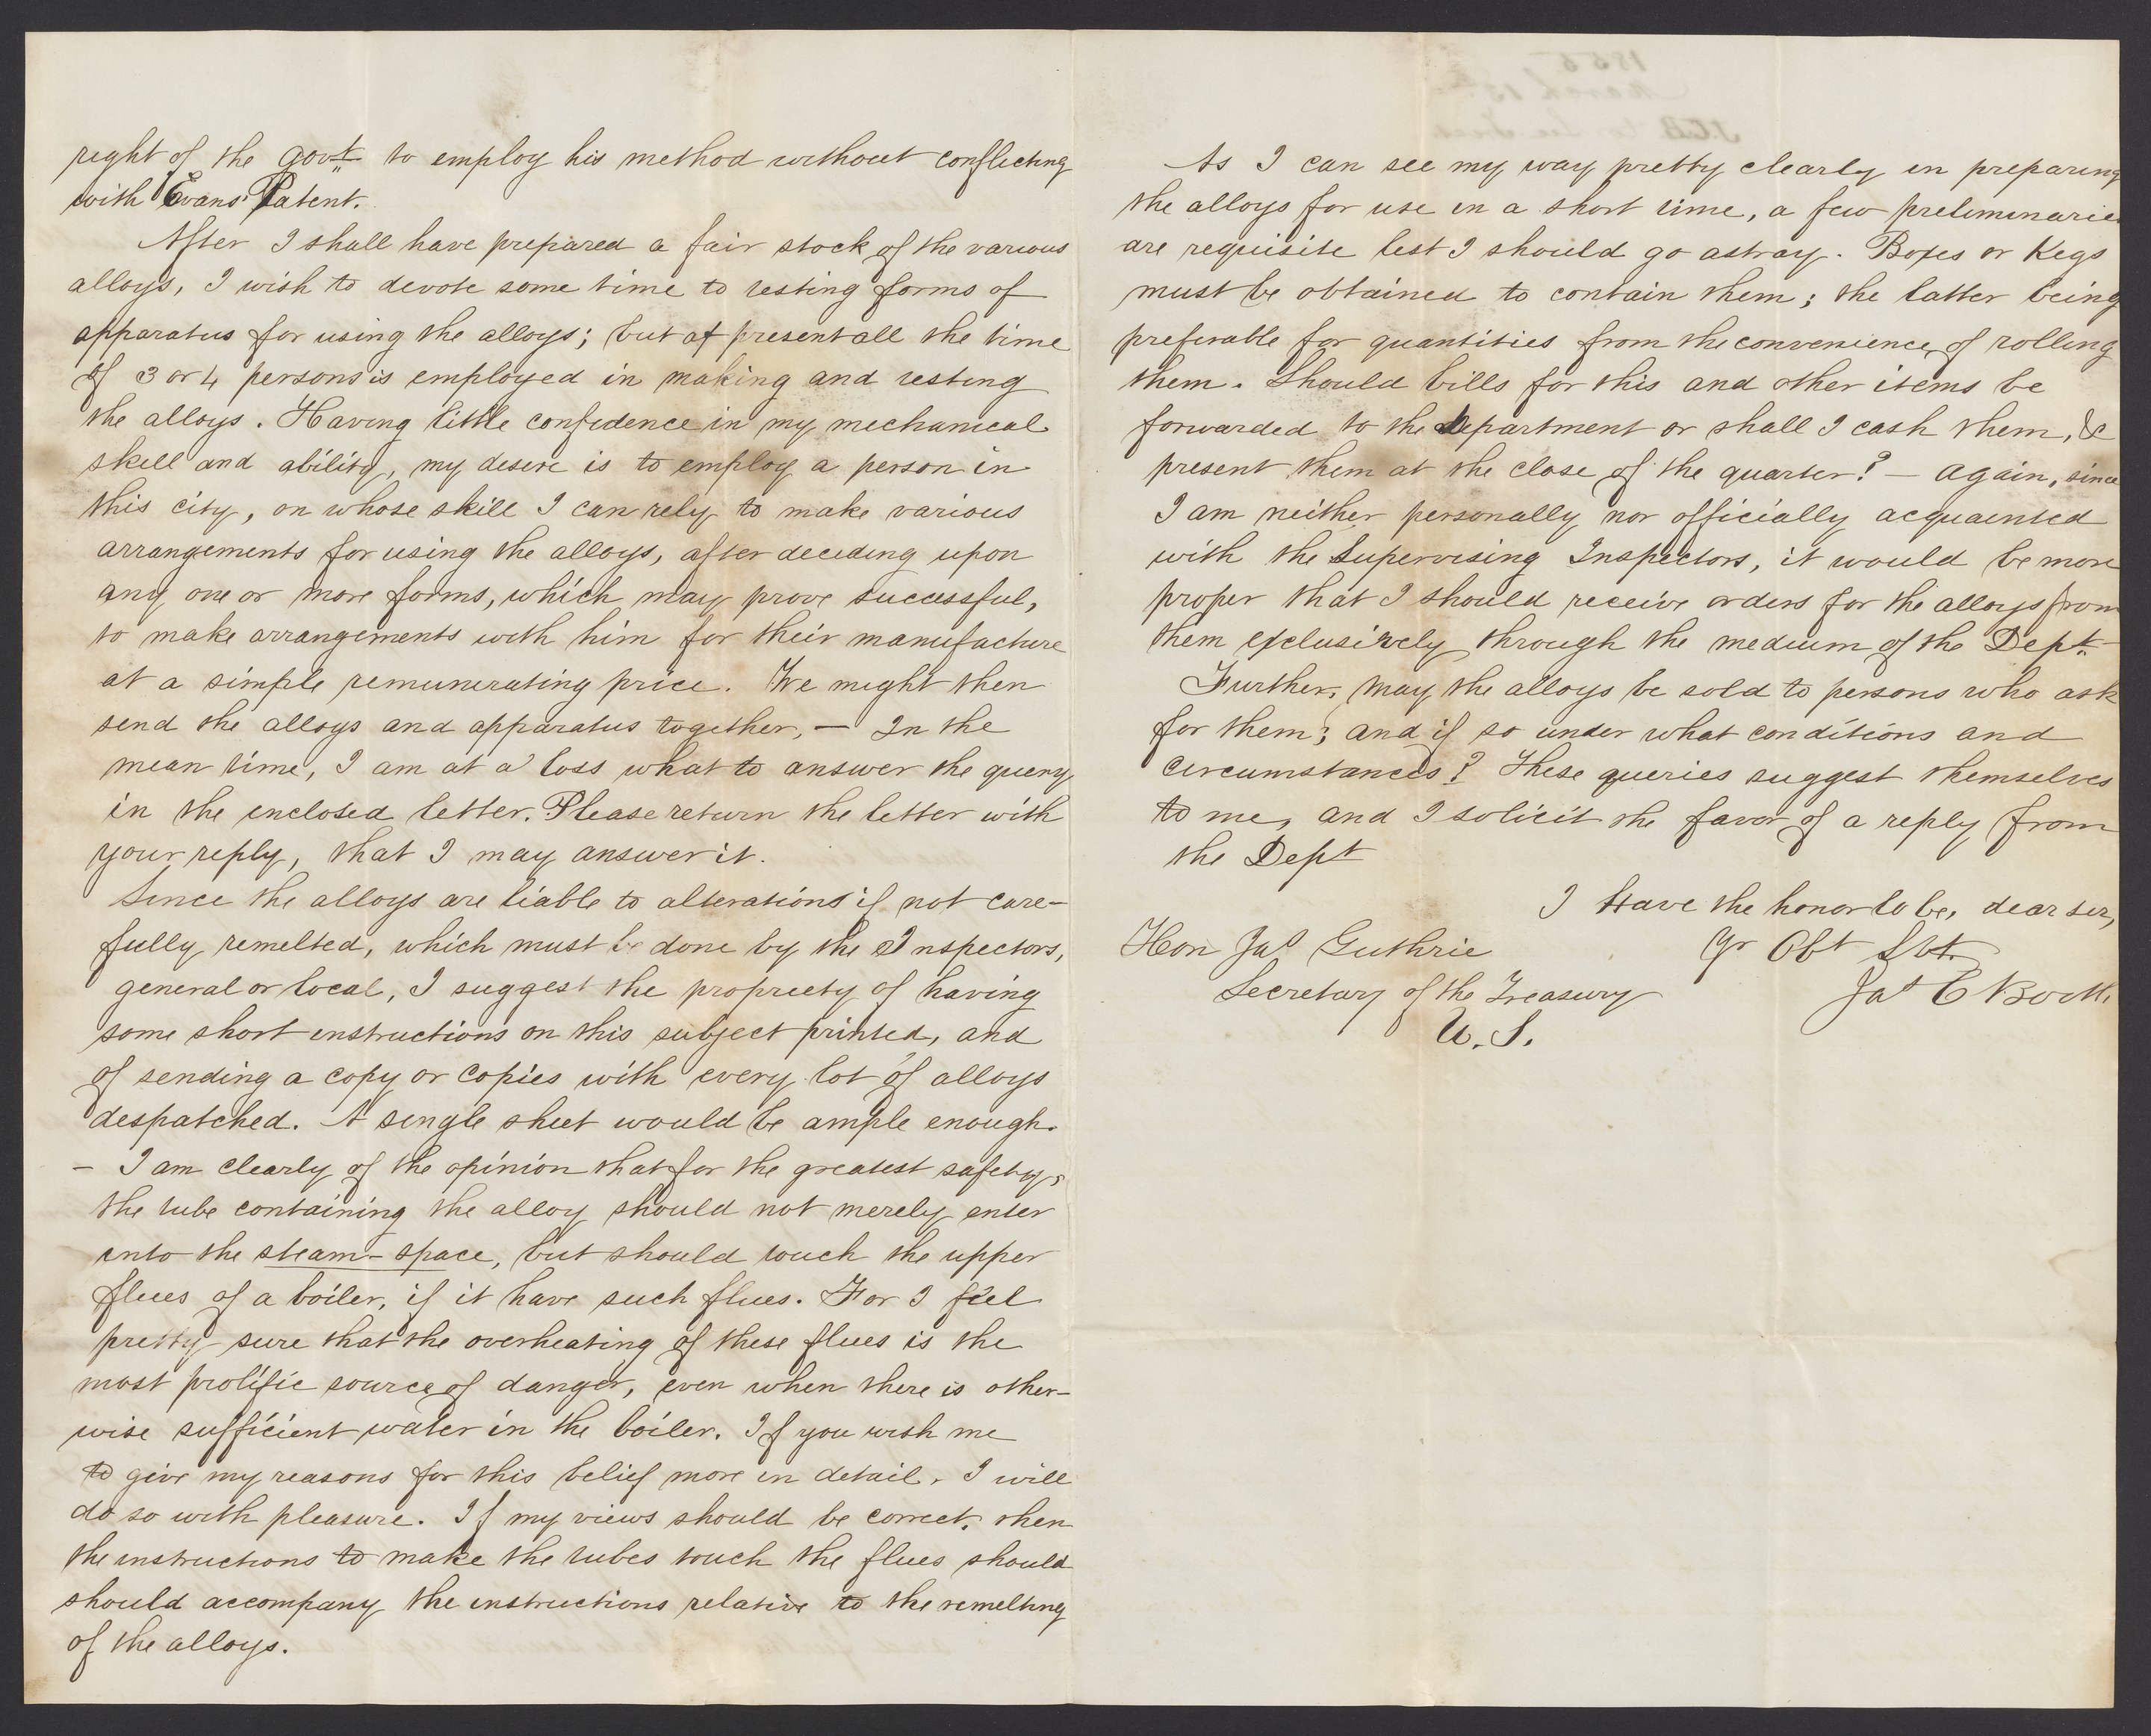 right of the Govt. to employ his method without conflicting
with Evans' Patent.
After I shall have prepared a fair stock of the various
alloys, I wish to devote some time to testing forms of
apparatus for using the alloys; but at present all the time
of 3 or 4 persons is employed in making and testing
the alloys. Having little confidence in my mechanical
skill and ability, my desire is to employ a person in
this city, on whose skill I can rely to make various
arrangements for using the alloys, after deciding upon
any one or more forms, which may prove successful,
to make arrangements with him for their manufacture
at a simple remunerating price. We might then
send the alloys and apparatus together, — In the
mean time, I am at a loss what to answer the query
in the enclosed letter. Please return the letter with
your reply, that I may answer it.
Since the alloys are liable to alterations if not care-
fully remelted, which must be done by the Inspectors,
general or local, I suggest the propriety of having
some short instructions on this subject printed, and
of sending a copy or copies with every lot of alloys
despatched. A single sheet would be ample enough.
— I am clearly of the opinion that for the greatest safety,
the tube containing the alloy should not merely enter
into the steam-space, but should touch the upper
flues of a boiler, if it have such flues. For I feel
pretty sure that the overheating of these flues is the
most prolific source of danger, even when there is other-
wise sufficient water in the boiler. If you wish me
to give my reasons for this belief more in detail, I will
do so with pleasure. If my views should be correct, then
the instructions to make the tubes touch the flues should
should accompany the instructions relative to the remelting
of the alloys.
As I can see my way pretty clearly in preparing
the alloys for use in a short time, a few preliminaries
are requisite lest I should go astray. Boxes or Kegs
must be obtained to contain them; the latter being
preferable for quantities from the convenience of rolling
them. Should bills for this and other items be
forwarded to the Department or shall I cash them, &
present them at the close of the quarter? — Again, since
I am neither personally nor officially acquainted
with the Supervising Inspectors, it would be more
proper that I should receive orders for the alloys from
them exclusively through the medium of the Dept.
Further, may the alloys be sold to persons who ask
for them; and if so under what conditions and
circumstances? These queries suggest themselves
to me, and I solicit the favor of a reply from
the Dept
I have the honor to be, dear sir,
Yr Obt Svt.
Jas C Booth
Hon Jas Guthrie
Secretary of the Treasury
U. S.